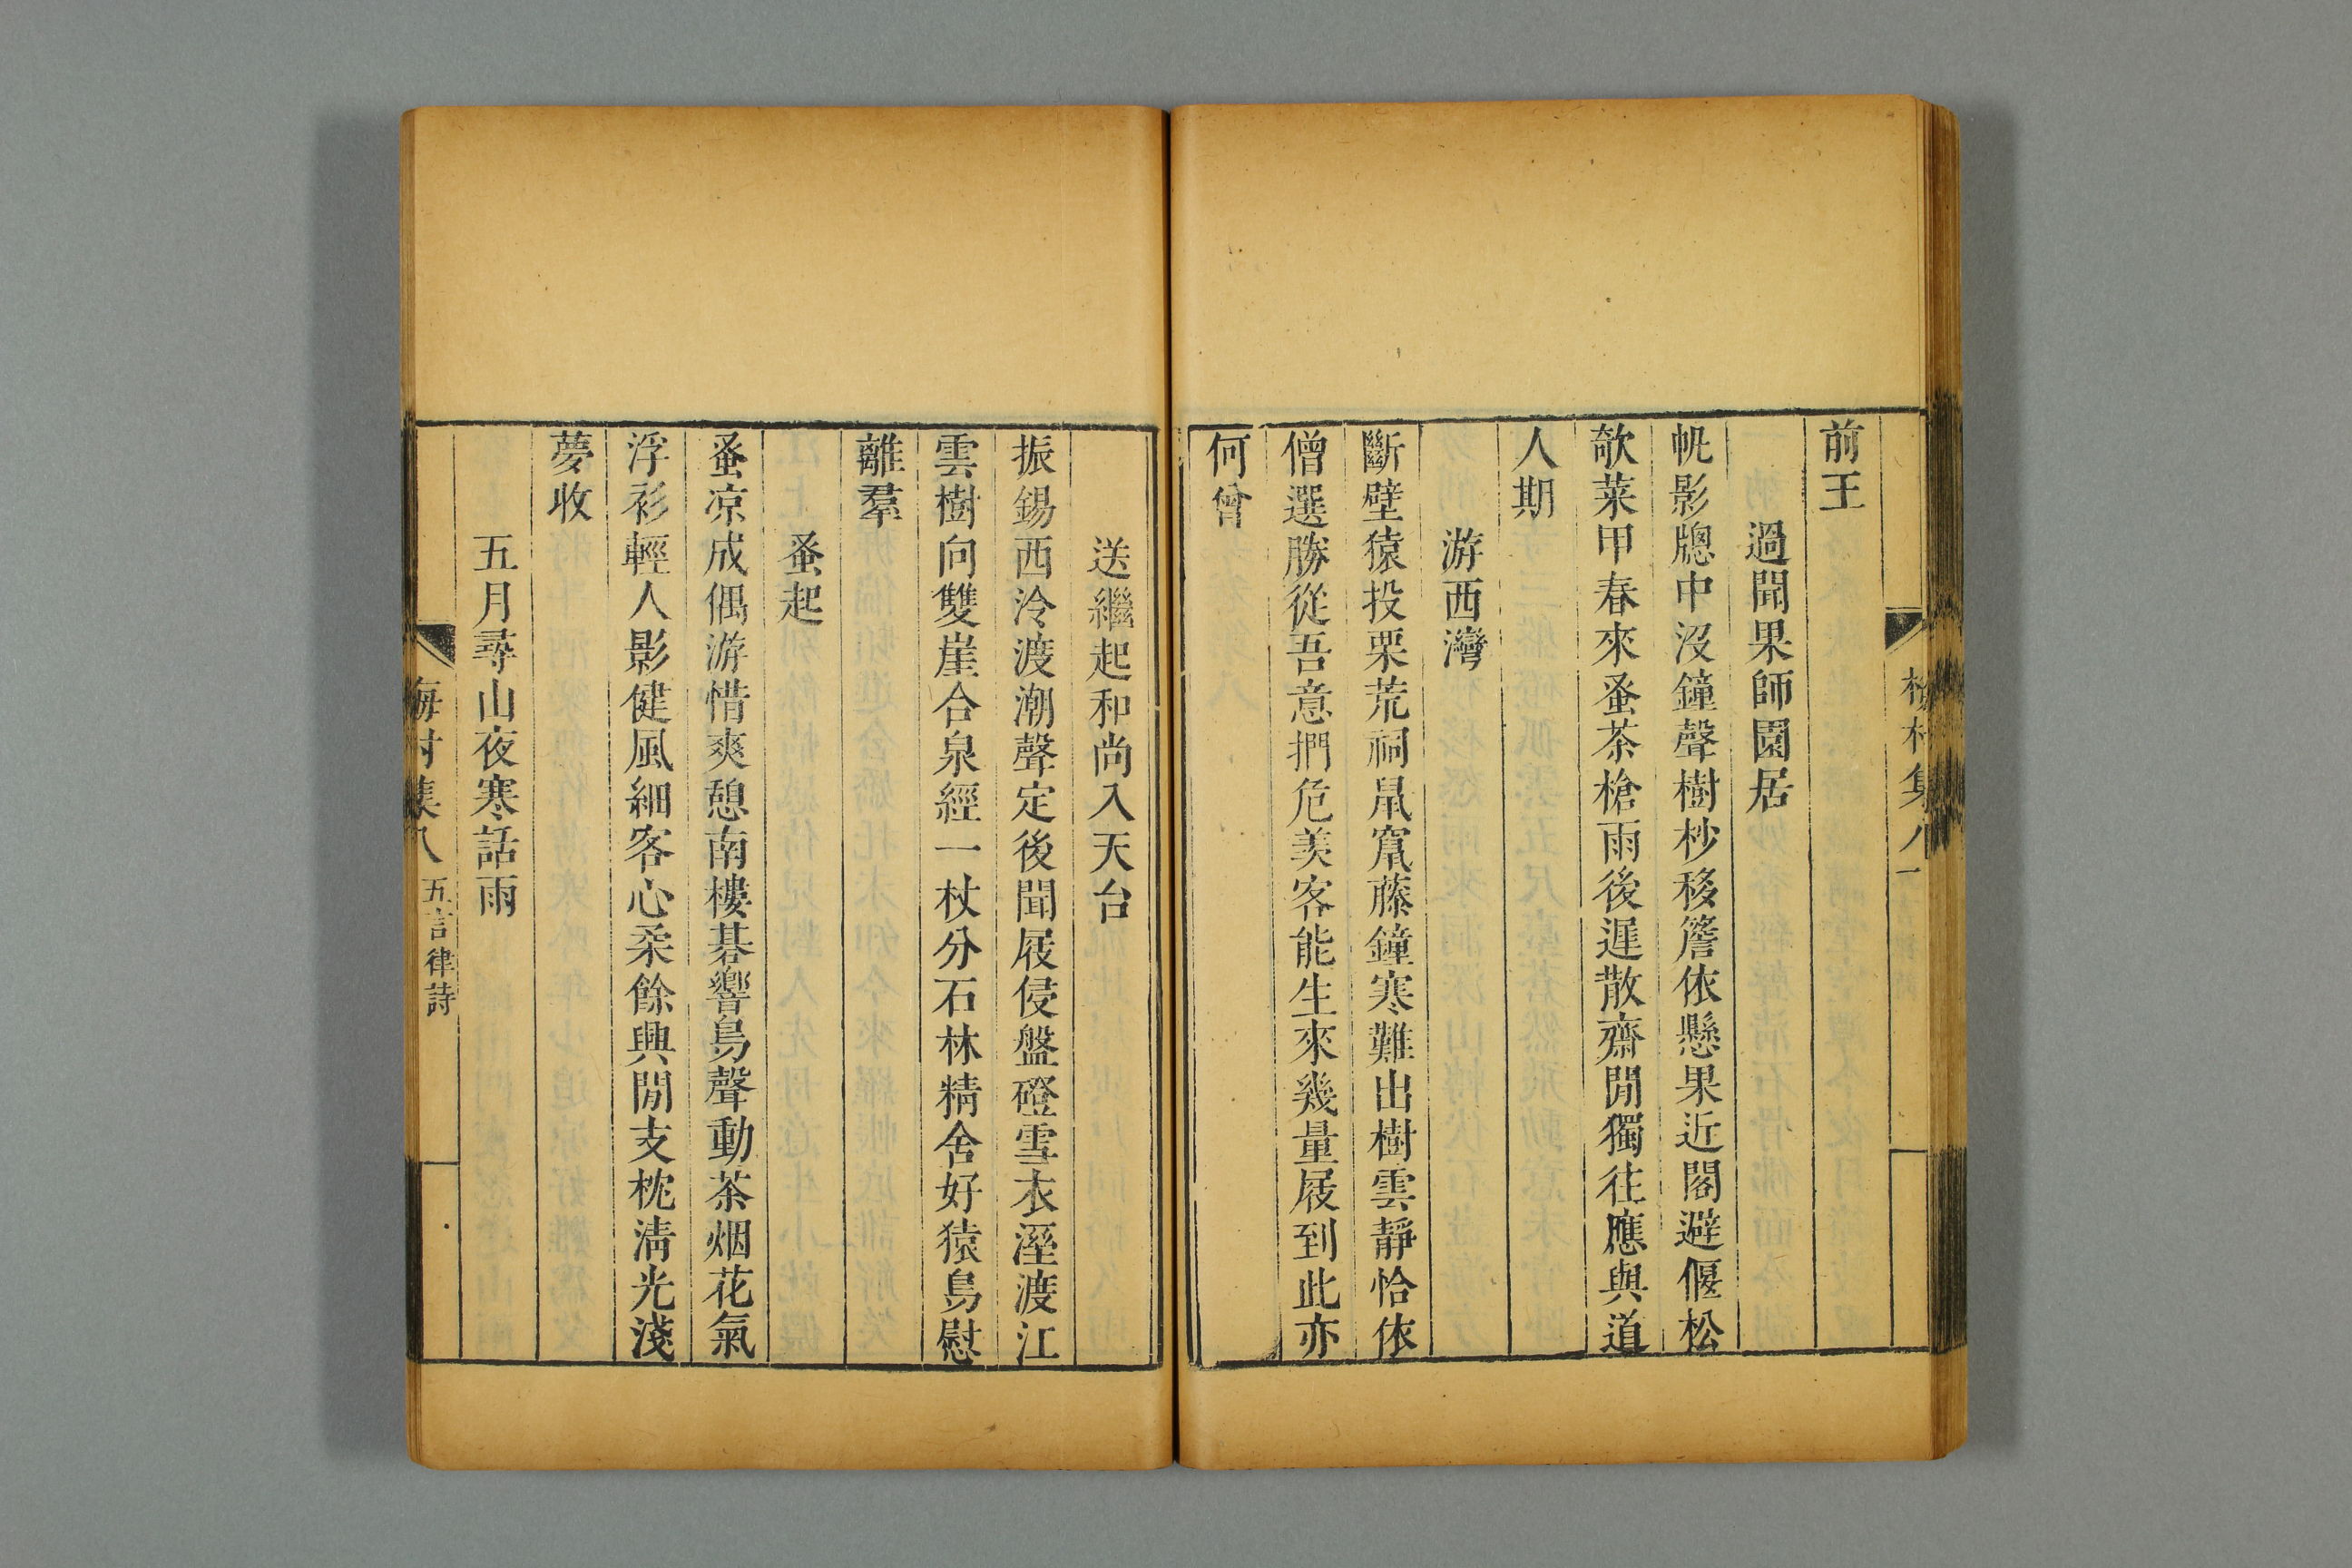 前王
過聞果師園居
帆影牕中沒鐘聲樹杪移簷依懸果近閣避偃松
欹菜甲春來蚤茶槍雨後遲散齋閒獨往應與道
人期
游西灣
斷壁猿投栗荒祠鼠竄藤鐘寒難出樹雲靜恰依
僧選勝從吾意捫危羙客能生來幾量屐到此亦
何曾
梅村集八
一
送繼起和尚入天台
振錫西泠渡潮聲定後聞屐侵盤磴雪衣溼渡江
雲樹向雙崖合泉經一杖分石林精舍好猿鳥慰
離羣
蚤起
蚤凉成偶游惜爽憩南樓碁響鳥聲動茶烟花氣
浮衫輕人影健風細客心柔餘興閒支枕淸光淺
夢收
五月尋山夜寒話雨
梅村集八
五言律詩